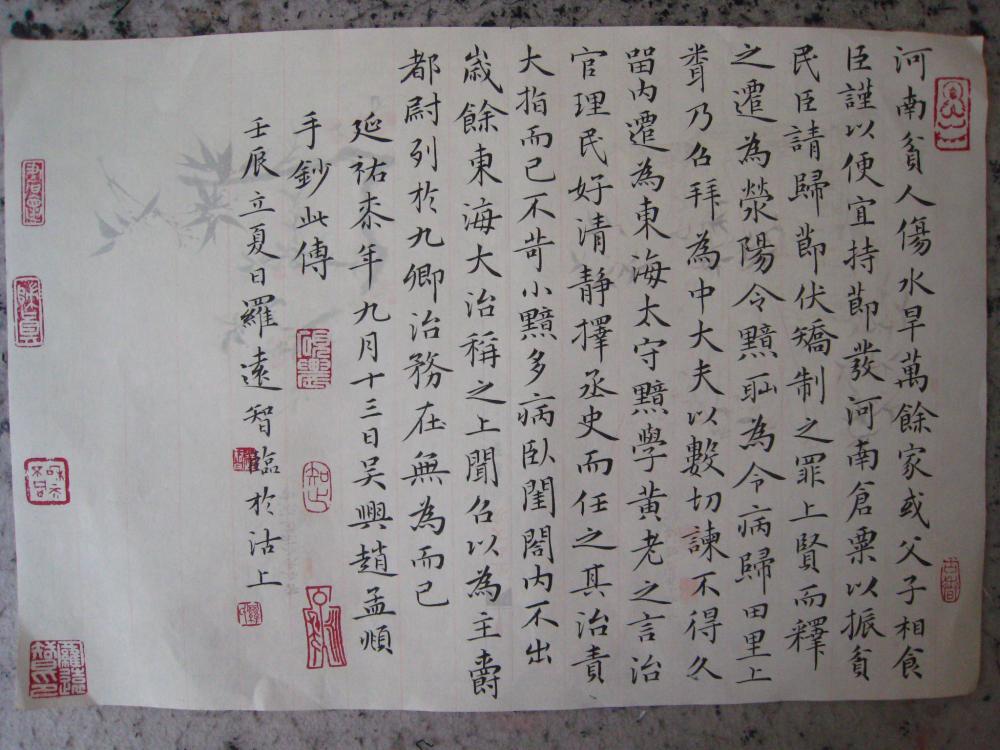 河南貧人傷水旱萬餘家或父子相食
臣謹以便宜持節發河南倉粟以振貧
民臣請歸節伏矯制之罪上賢而釋
之遷為滎陽令黯恥為令病歸田里上
聞乃召拜為中大夫以數切諫不得久
留內遷為東海太守黯學黃老之言治
官理民好清靜擇丞史而任之其治責
大指而已不苛小黯多病臥閨閤內不出
歲餘東海大治稱之上聞召以為主爵
都尉列於九卿治務在無為而已
延祐柒年九月十三日吳興趙孟頫
手鈔此傳
壬辰立夏日羅遠智臨於沽上